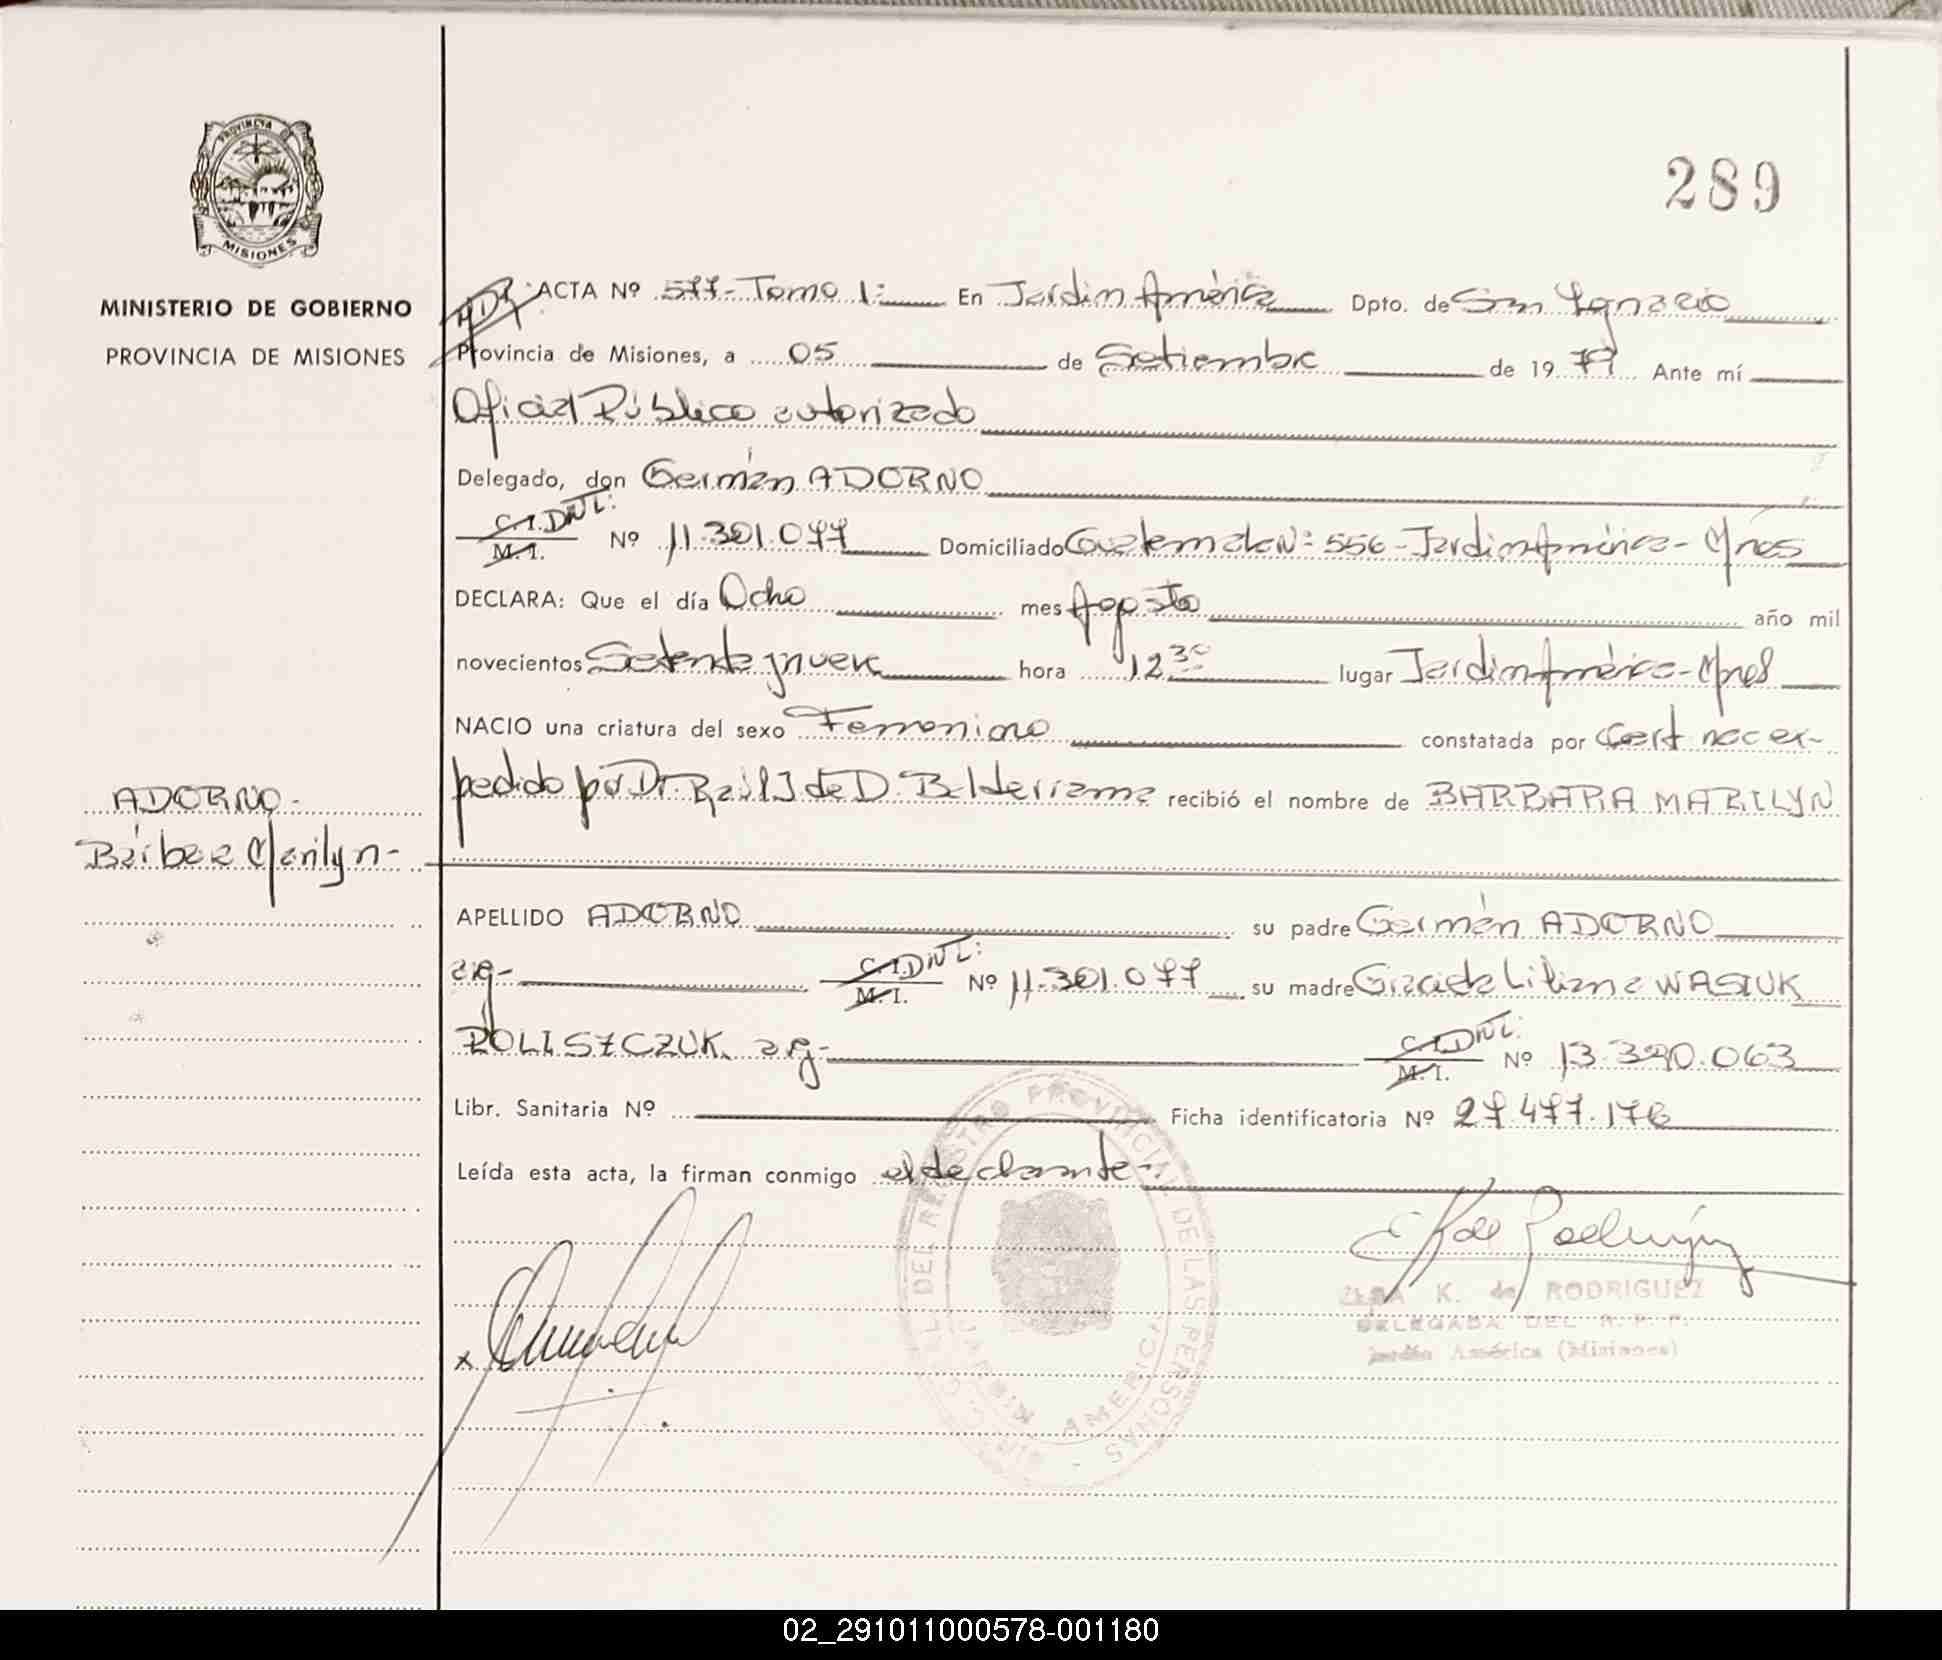 289
PROVINCIA
MISIONES
MINISTERIO DE GOBIERNO
PROVINCIA DE MISIONES
ACTA Nº 577- Tomo 1: En Jardín América Dpto. de San Ignacio
Provincia de Misiones, a 05 de Setiembre de 1979 Ante mí
Oficial Público autorizado
Delegado, don Germán ADORNO
C.I. DNI: M.I. Nº 11.301.077 Domiciliado Guatemala Nº 556- Jardín América- Mnes
DECLARA: Que el día Ocho mes Agosto año mil
novecientos Setenta y nueve hora 12 30 lugar Jardín América- Mnes
NACIO una criatura del sexo Femenino constatada por Cert nac ex-
pedido por Dr. Raúl J de D. Balderrama recibió el nombre de BARBARA MARILYN
ADORNO-
Bárbara Marilyn-
APELLIDO ADORNO su padre Germán ADORNO
arg- C.I. DNI: M.I. Nº 11.301.077 su madre Graciela Liliana WASIUK
POLISZCZUK arg- C.I. DNI: M.I. Nº 13.390.063
Libr. Sanitaria Nº Ficha identificatoria Nº 27.477.176
Leída esta acta, la firman conmigo el declarante-
REGISTRO PROVINCIAL DE LAS PERSONAS
JARDIN AMERICA
x
K. de RODRIGUEZ
DELEGADA DEL R. P. P.
Jardín América (Misiones)
02_291011000578-001180